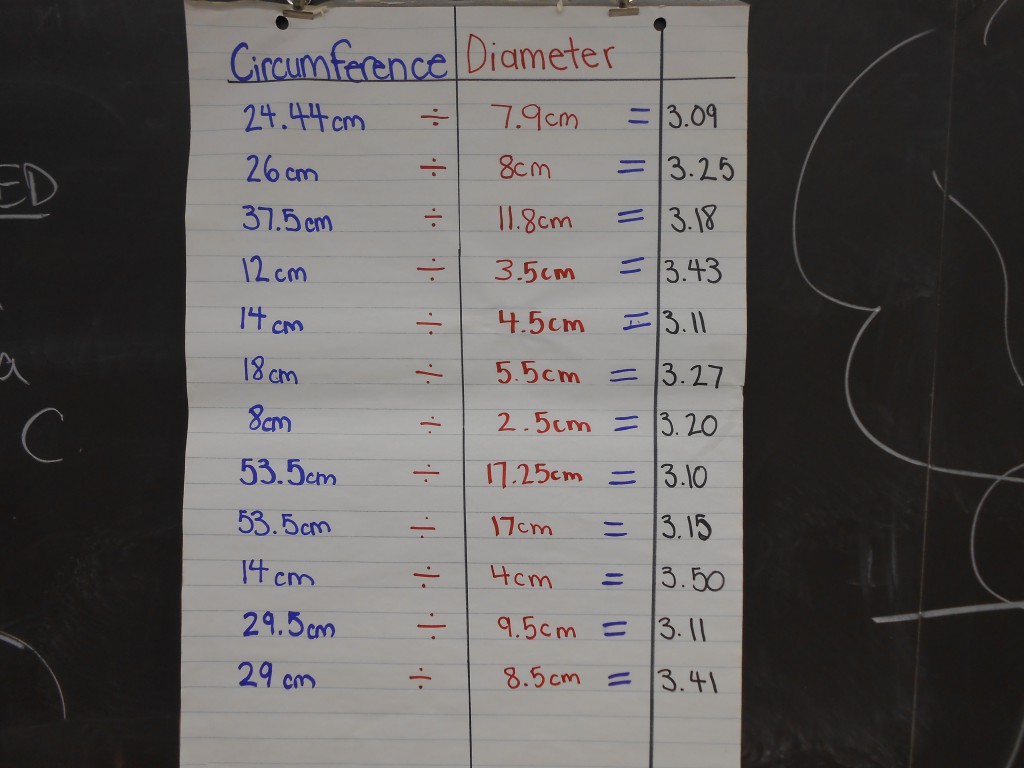 Circumference Diameter
24.44cm ÷ 7.9cm = 3.09
26cm ÷ 8cm = 3.25
37.5cm ÷ 11.8cm = 3.18
12cm ÷ 3.5cm = 3.43
14cm ÷ 4.5cm = 3.11
18cm ÷ 5.5cm = 3.27
8cm ÷ 2.5cm = 3.20
53.5cm ÷ 17.25cm = 3.10
53.5cm ÷ 17cm = 3.15
14cm ÷ 4cm = 3.50
29.5cm ÷ 9.5cm = 3.11
29cm ÷ 8.5cm = 3.41
ED
a
C